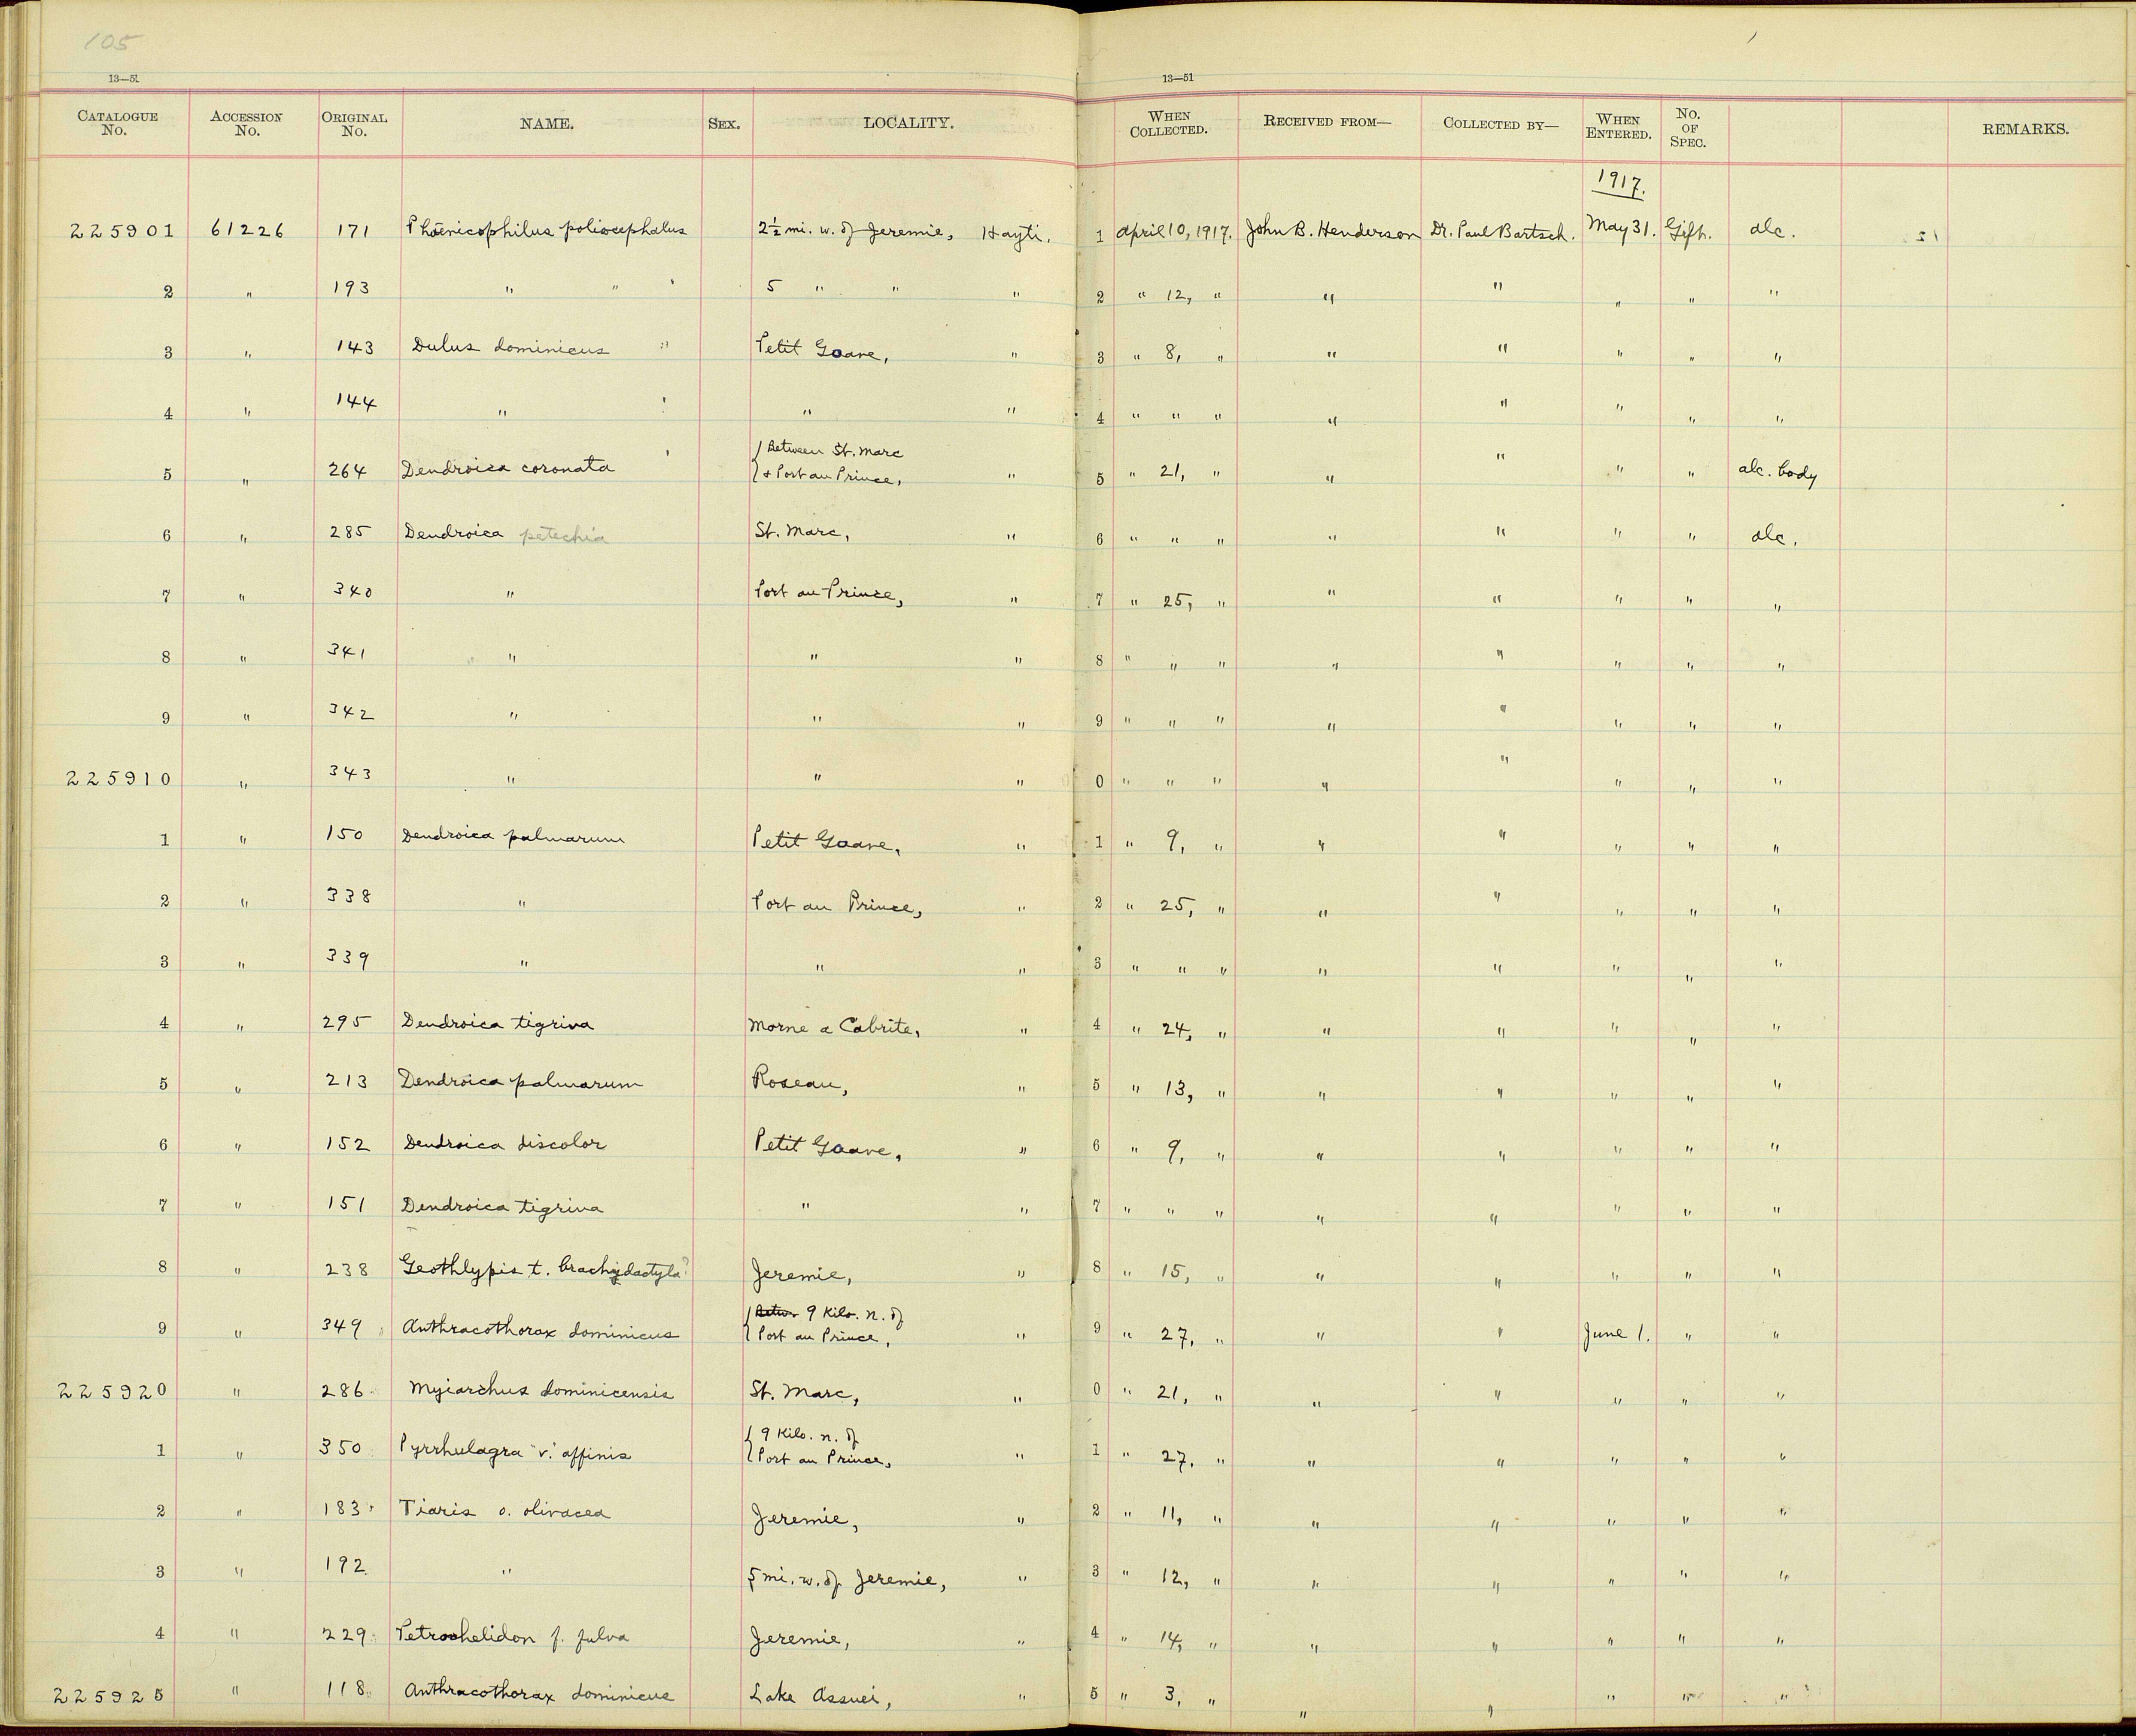 105
13—51
13—51
CATALOGUE No. ACCESSION No. ORIGINAL No. NAME. SEX. LOCALITY. WHEN COLLECTED. RECEIVED FROM— COLLECTED BY— WHEN ENTERED. No. OF SPEC. REMARKS.
1917.
225901 61226 171 Phœnicophilus poliocephalus 2½ mi. w. of Jeremie, Hayti. 1 April 10, 1917. John B. Henderson Dr. Paul Bartsch. May 31. Gift. alc.
2 " 193 " " 5 " " " 2 " 12, " " " " " "
3 " 143 Dulus dominicus Petit Goave, " 3 " 8, " " " " " "
4 " 144 " " " 4 " " " " " " " "
5 " 264 Dendroica coronata { Between St. Marc
& Port au Prince, " 5 " 21, " " " " " alc. body
6 " 285 Dendroica petechia St. Marc, " 6 " " " " " " " alc.
7 " 340 " Port au Prince, " 7 " 25, " " " " " "
8 " 341 " " " 8 " " " " " " " "
9 " 342 " " " 9 " " " " " " " "
225910 " 343 " " " 0 " " " " " " " "
1 " 150 Dendroica palmarum Petit Goave, " 1 " 9, " " " " " "
2 " 338 " Port au Prince, " 2 " 25, " " " " " "
3 " 339 " " " 3 " " " " " " " "
4 " 295 Dendroica tigrina Morne a Cabrite, " 4 " 24, " " " " " "
5 " 213 Dendroica palmarum Roseau, " 5 " 13, " " " " " "
6 " 152 Dendroica discolor Petit Goave, " 6 " 9, " " " " " "
7 " 151 Dendroica tigrina " " 7 " " " " " " " "
8 " 238 Geothlypis t. brachydactyla? Jeremie, " 8 " 15, " " " " " "
9 " 349 Anthracothorax dominicus { Betw. 9 Kilo. n. of
Port au Prince, " 9 " 27, " " " June 1. " "
225920 " 286 Myiarchus dominicensis St. Marc, " 0 " 21, " " " " " "
1 " 350 Pyrrhulagra "v." affinis { 9 Kilo. n. of
Port au Prince, " 1 " 27, " " " " " "
2 " 183 Tiaris o. olivacea Jeremie, " 2 " 11, " " " " " "
3 " 192 " 5 mi. w. of Jeremie, " 3 " 12, " " " " " "
4 " 229 Petrochelidon f. fulva Jeremie, " 4 " 14, " " " " " "
225925 " 118 Anthracothorax dominicus Lake Assuei, " 5 " 3, " " " " " "